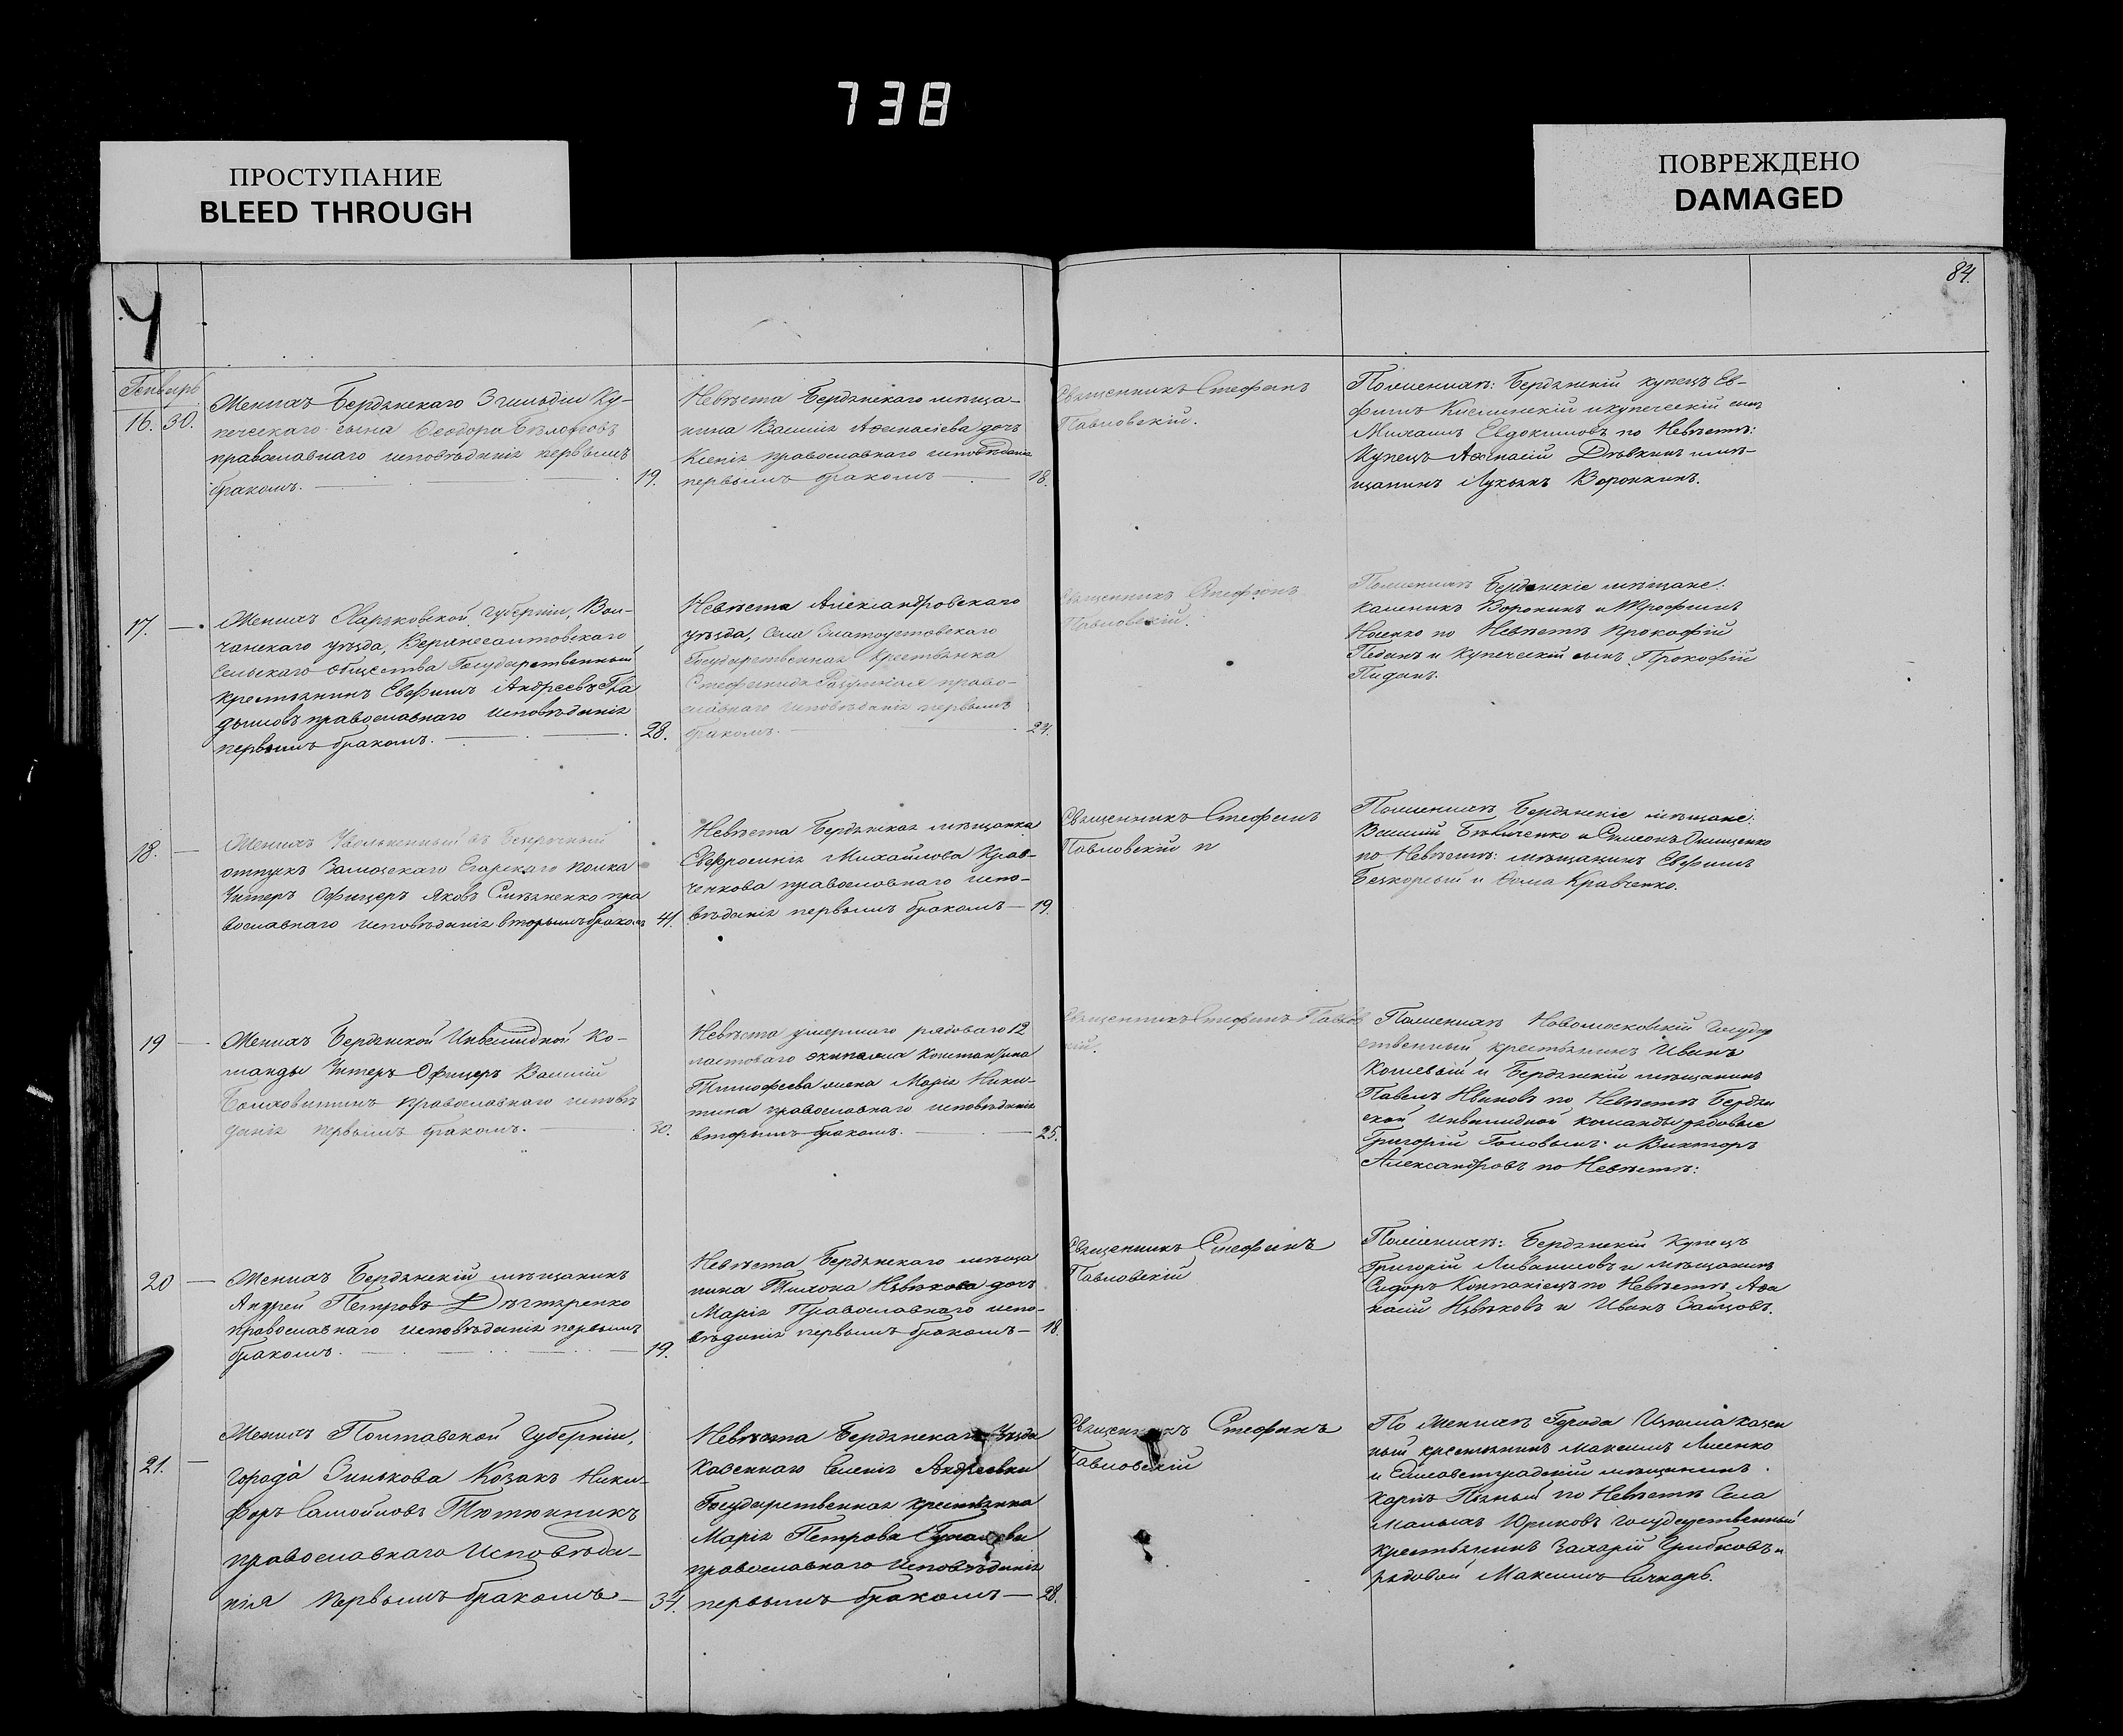 738
ПРОСТУПАНИЕ
BLEED THROUGH
ПОВРЕЖДЕНО
DAMAGED
84.
Генварь
16. 30.
Жених Бердянскаго 3 гильдии Ку-
печескаго сына Феодора
православнаго исповѣданія первымъ
бракомъ.
19.
Невѣста Бердянскаго мѣща-
нина Василія Афанасіева дочь
Ксенія православнаго исповѣданія
первымъ бракомъ
18.
Священникъ Стефанъ
Павловскій.
По женихѣ: Бердянскій купецъ Ев-
фимъ и купеческій сынъ
Михаилъ Евдокимовъ по Невѣстѣ:
Купецъ Афанасій и мѣ-
щанинъ Лукьянъ Воронкинъ.
17.
Женихъ Харьковской Губерніи, Вол-
чанскаго уѣзда,
Сельскаго общества Государственный
крестьянинъ Евфимъ Андреевъ Гла
дышовъ православнаго исповѣданія
первымъ бракомъ.
28.
Невѣста Александровскаго
уѣзда, Села Златоустовскаго
Государственная Крестьянка
Стефанида право-
славнаго исповѣданія первымъ
бракомъ.
24.
Священникъ Стефанъ
Павловскій.
По женихѣ Бердянскіе мѣщане:
Воронинъ и Трофимъ
Носенко по Невѣстѣ Прокофій
и Купеческій сынъ Прокофій
18.
Женихъ Уволенный въ безсрочный
отпускъ Замосцкаго Егерскаго полка
Унтеръ Офицеръ Яковъ пра
вославнаго исповѣданія вторымъ бракомъ
41.
Невѣста Бердянская мѣщанка
Евфросинія Михайлова Крав-
ченкова православнаго испо-
вѣданія первымъ бракомъ
19.
Священникъ Стефанъ
Павловскій
По женихѣ Бердянскіе мѣщане:
Василій и Симеонъ Онищенко
по Невѣстѣ: мѣщанинъ Евфимъ
и Фома Кравченко.
19
Женихъ Бердянской Инвалидной Ко-
манды Унтеръ Офицеръ Василій
православнаго исповѣ
данія первымъ бракомъ.
30.
Невѣста умершаго рядоваго 12
ластоваго экипажа Константина
Тимофеева жена Марія Ники-
тина православнаго исповѣданія
вторымъ бракомъ.
25.
Священникъ Стефанъ Павловс
кій.
По женихѣ Новомосковскій Государ
ственный крестьянинъ Иванъ
Кошевый и Бердянскій мѣщанинъ
Павелъ Ивановъ по Невѣстѣ Бердян
ской инвалидной команды рядовые
Григорій и Викторъ
Александровъ по Невѣстѣ:
20
Женихъ Бердянскій мѣщанинъ
Андрей Петровъ Дегтяренко
православнаго исповѣданія первымъ
бракомъ.
19.
Невѣста Бердянскаго мѣща
нина Тихона дочь
Марія Православнаго испо-
вѣданія первымъ бракомъ
18.
Священникъ Стефанъ
Павловскій
По женихѣ: Бердянскій Купецъ
Григорій и мѣщанинъ
Сидоръ Компаніецъ по Невѣстѣ Афа
насій и Иванъ Зайцовъ.
21.
Женихъ Полтавской Губерніи,
города Зинькова Козакъ Ники-
форъ Самойловъ Тютюнникъ
православнаго Исповѣда-
нія первымъ бракомъ
34.
Невѣста Бердянскаго Уѣзда
Казеннаго Селенія Андреевки
Государственная крестьянка
Марія Петрова
православнаго Исповѣданія
первымъ бракомъ
28.
Священникъ Стефанъ
Павловскій
По Женихѣ Города Изюма казен
ный крестьянинъ Максимъ Лисенко
и Елисаветградскій мѣщанинъ
Карпъ по Невѣстѣ Села
Государственный
крестьянинъ Захарій Грибковъ и
рядовой Максимъ